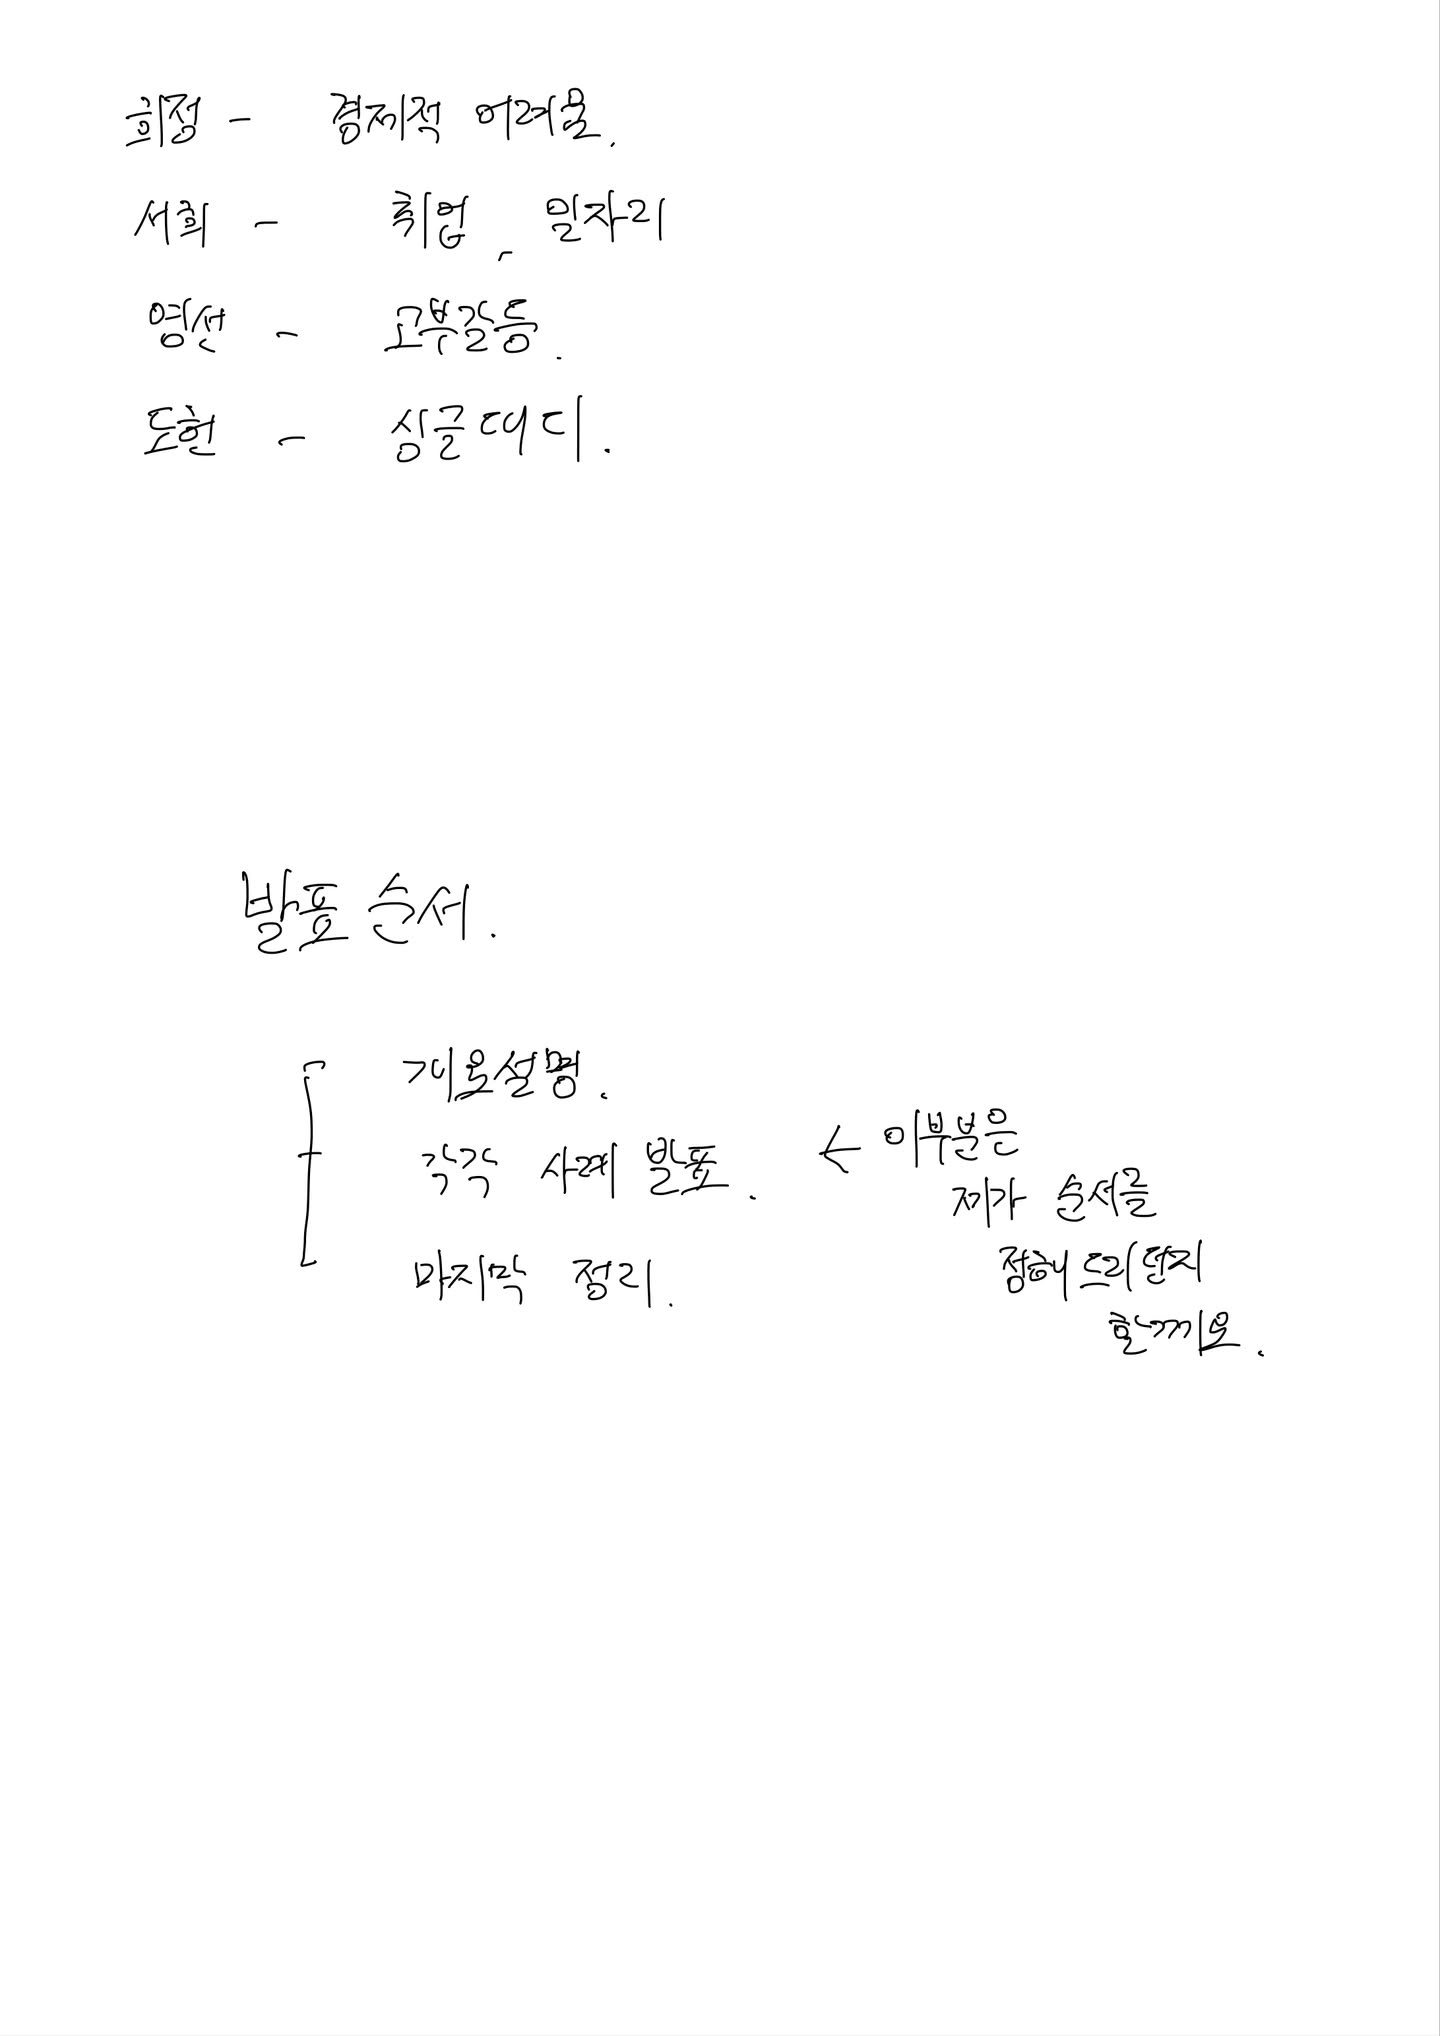 희정 - 경제적 어려움.
서희 - 취업, 일자리
영선 - 고부갈등.
도현 - 싱글대디.
발표 순서.
개요설명.
각각 사례 발표. ← 이부분은
제가 순서를
정해 드리던지
할께요.
마지막 정리.